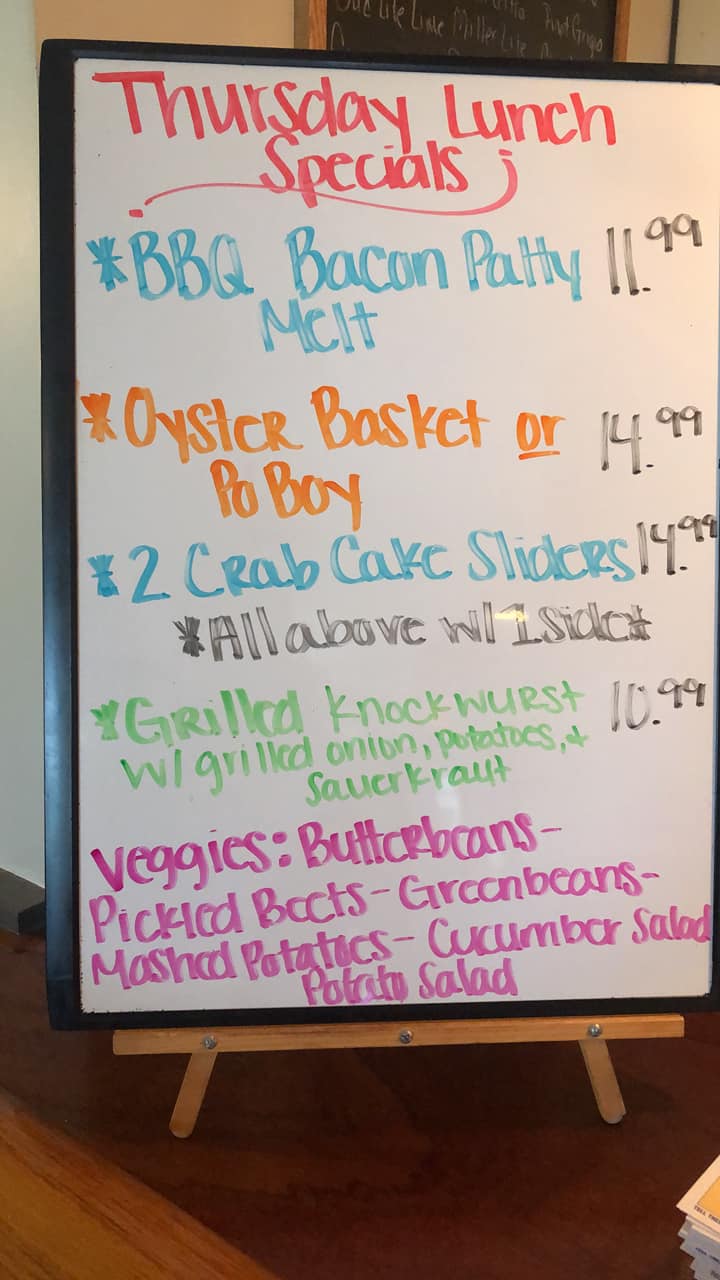 Miller Lite
Thursday Lunch
Specials
*BBQ Bacon Patty 11.99
Melt
*Oyster Basket or 14.99
Po Boy
*2 Crab Cake Sliders 14.99
*All above w/ 1 side*
*Grilled Knockwurst 10.99
w/ grilled onion, potatoes, +
Sauerkraut
Veggies: Butterbeans-
Pickled Beets- Greenbeans-
Mashed Potatoes- Cucumber Salad
Potato Salad